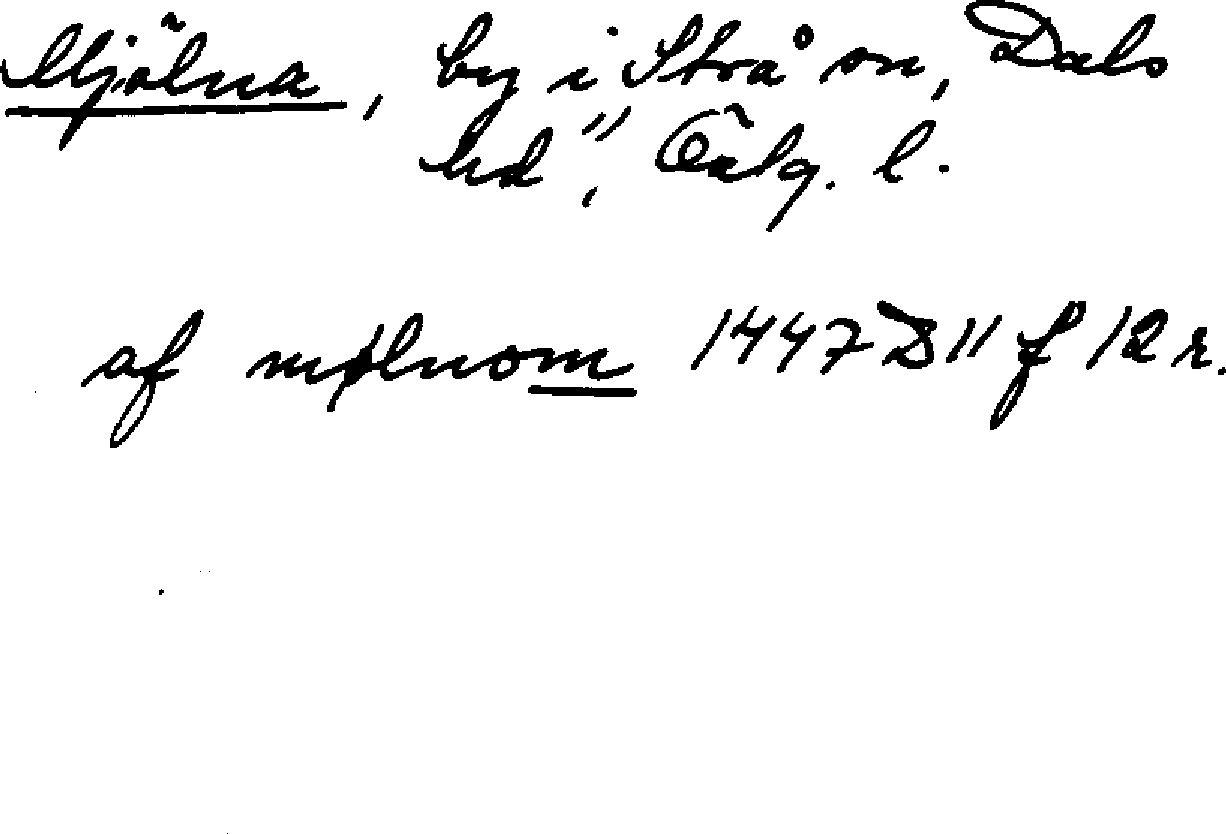 Mjölna, by i Strå sn, Dals
hd, Östg. l.
af mølnom 1447 D 11 f 12 r.